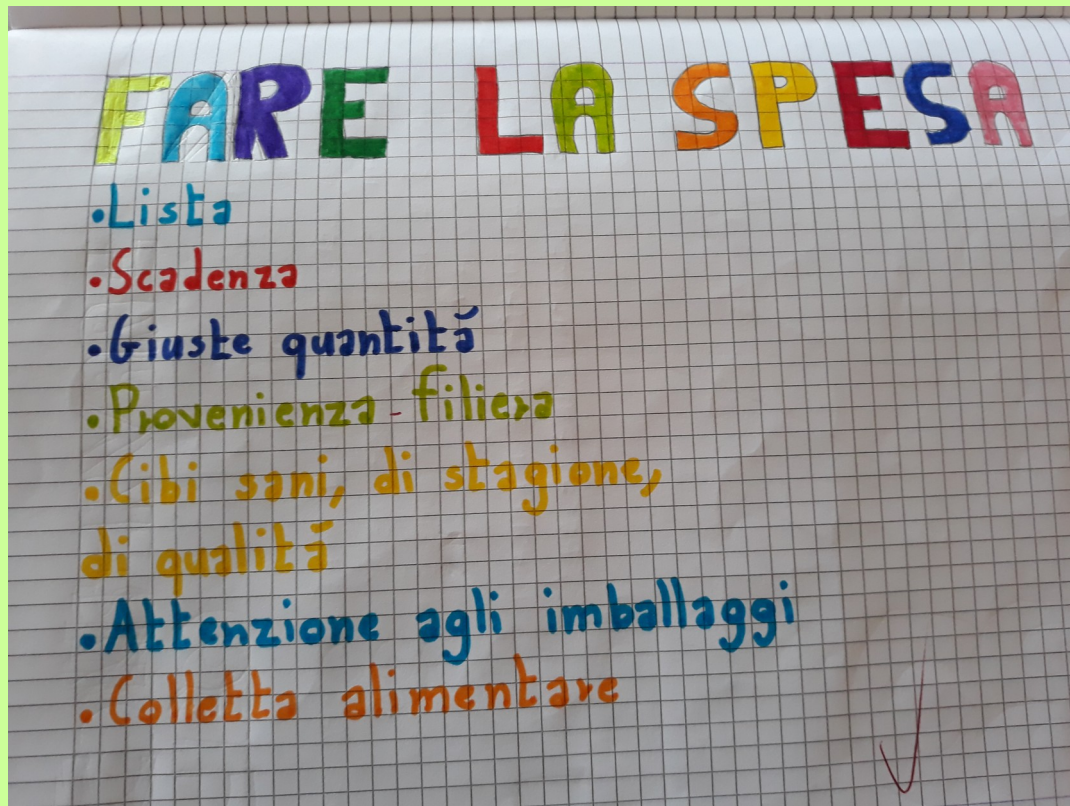 FARE LA SPESA
•Lista
•Scadenza
•Giuste quantità
•Provenienza-filiera
•Cibi sani, di stagione,
di qualità
•Attenzione agli imballaggi
•Colletta alimentare